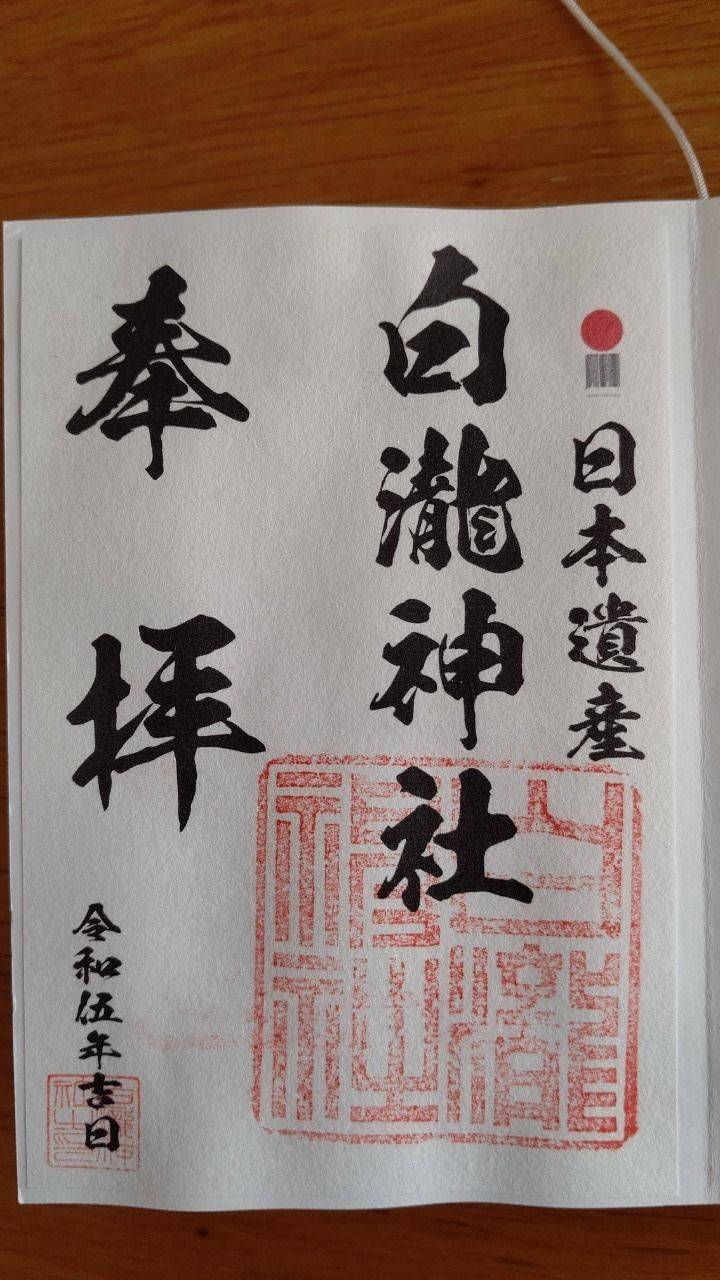 日本遺産
白瀧神社
奉拝
令和伍年吉日
白瀧神社